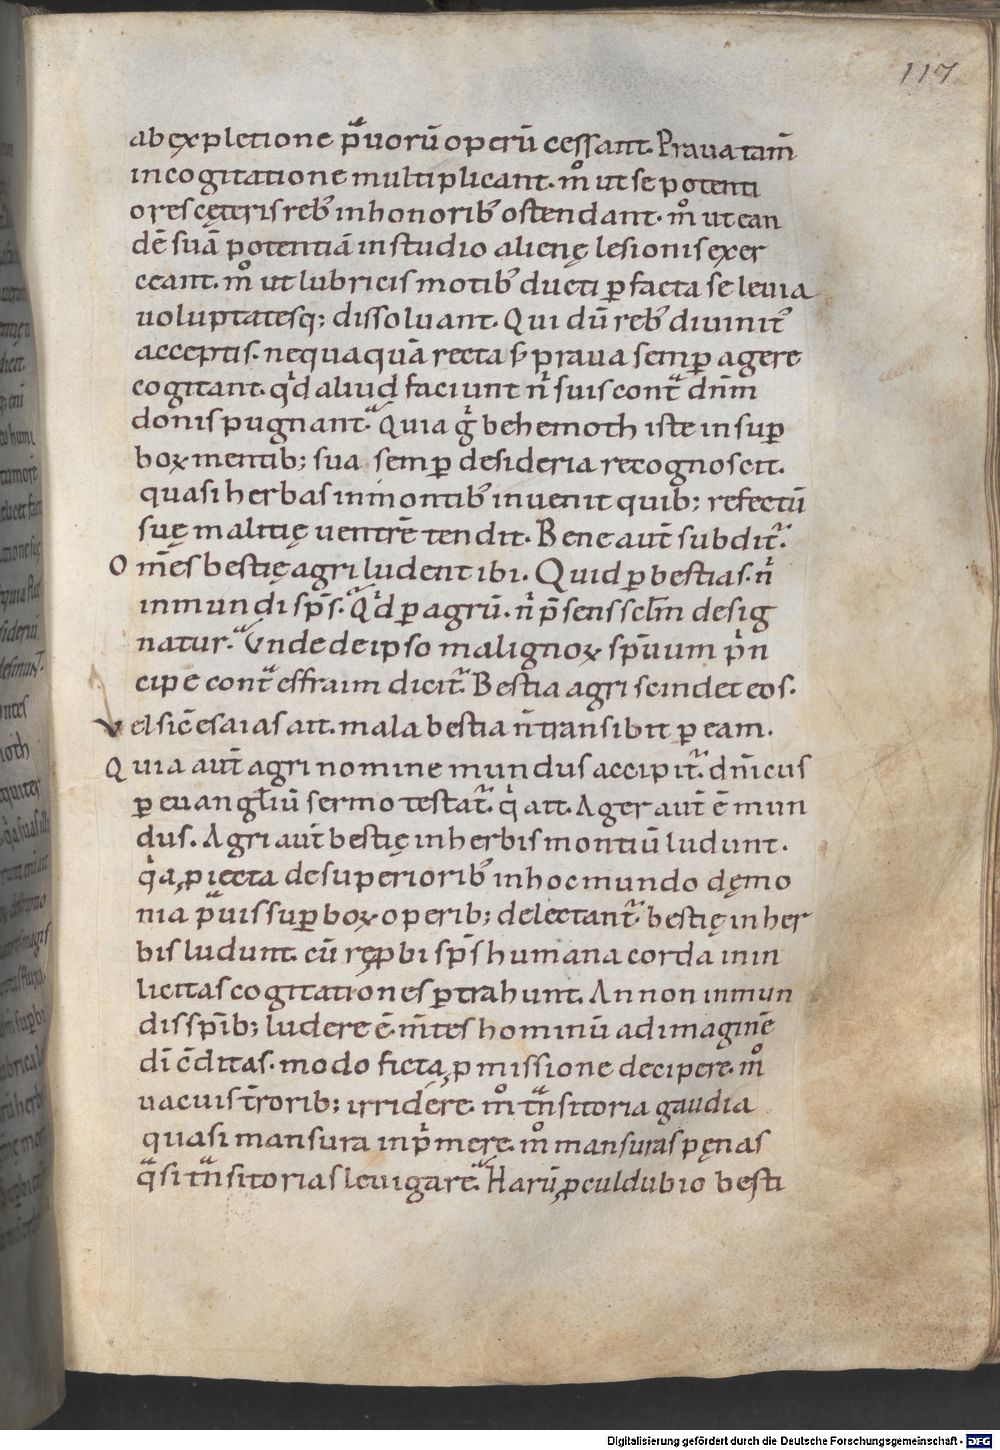 117
ab expletione p̄uorū operū cessant. Praua tam̄
in cogitatione multiplicant. m̊ ut se potenti
ores cęteris reb᾽ in honorib᾽ ostendant. m̊ ut ean
dē suā potentiā in studio alienę lesionis exer
ceant. m̊ ut lubricis motib᾽ ducti ꝑ facta se leuia
uoluptatesq; dissoluant. Qui dū reb᾽ diuinit᾽
acceptis. nequaquā recta s̄ praua semꝑ agere
cogitant. qͥd aliud faciunt nͥ suis contᷓ dn̄m
donis pugnant. Quia gͦ behemoth iste in suꝑ
boꝝ mentib; sua semꝑ desideria recognoscit.
quasi herbas in montib᾽ inuenit quib; refectū
suę malitię uentrē tendit. Bene aut̄ subditᷓ.
Om̄es bestię agri ludent ibi. Quid ꝑ bestias. nͥ
inmundi sp̄s. Qͥd ꝑ agrū. nͥ p̄sens sclm̄ desig
natur. Vnde de ipso malignoꝝ sp̄uum pͥn
cipe contᷓ effraim dicitᷓ. Bestia agri scindet eos.
Vel sic̄ esaias ait. mala bestia n̄ transibit ꝑ eam.
Quia aut̄ agri nomine mundus accipitᷓ. dn̄icus
ꝑ euangl̄iū sermo testatᷓ. qͥ ait. Ager aut̄ ē mun
dus. Agri aut̄ bestię in herbis montiū ludunt.
qͥa ꝓiecta de superiorib᾽ in hoc mundo dęmo
nia pᷓuis suꝑboꝝ operib; delectantᷓ. bestię in her
bis ludunt. cū rępbi sp̄s humana corda in in
licitas cogitationes ꝑtrahunt. An non inmun
dis sp̄ib; ludere ē. m̄tes hominū ad imaginē
dī c̄ditas. modo ficta ꝓmissione decipere. m̊
uacuis t̄rorib; irridere. m̊ tᷓnsitoria gaudia
quasi mansura inpͥmere. m̊ mansuras pęnas
qᷓsi tᷓnsitorias leuigare. Harū ꝓculdubio besti
Digitalisierung gefördert durch die Deutsche Forschungsgemeinschaft - DFG